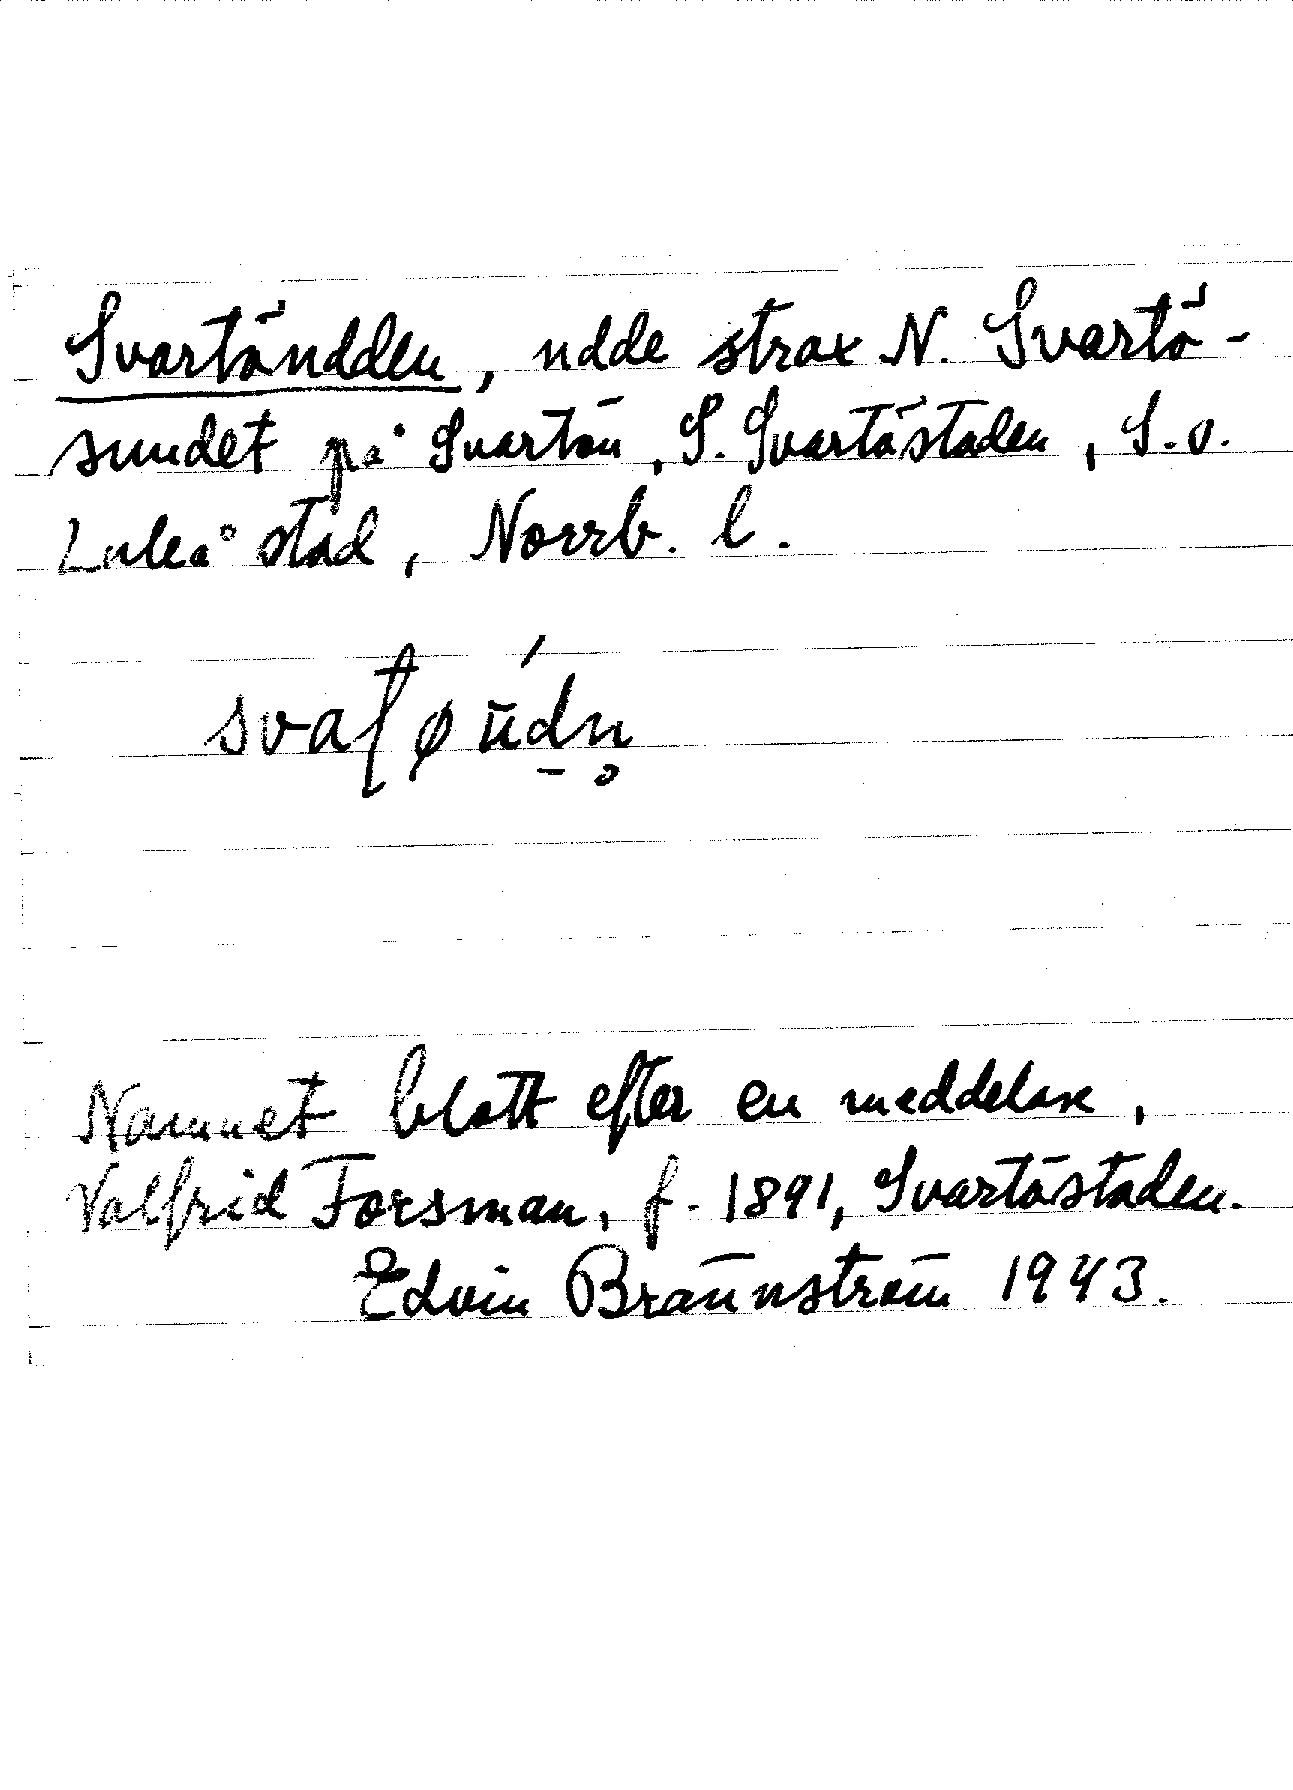 Svartöudden, udde strax N. Svartö-
sundet på Svartön, S. Svartöstaden, S.o.
Luleå stad, Norrb. l.
Namnet blott efter en meddelare,
Valfrid Forsman, f. 1891, Svartöstaden.
Edvin Brännström 1943.